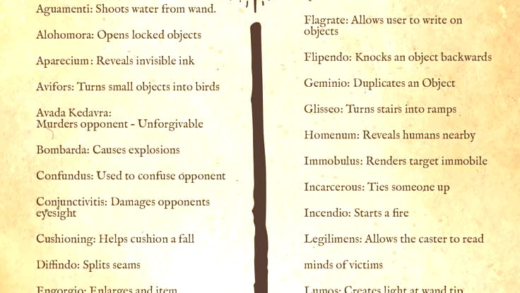 Aguamenti: Shoots water from wand.
Alohomora: Opens locked objects
Aparecium: Reveals invisible ink
Avifors: Turns small objects into birds
Avada Kedavra:
Murders opponent - Unforgivable
Bombarda: Causes explosions
Confundus: Used to confuse opponent
Conjunctivitis: Damages opponents
eyesight
Cushioning: Helps cushion a fall
Diffindo: Splits seams
Engorgio: Enlarges and item
Flagrate: Allows user to write on
objects
Flipendo: Knocks an object backwards
Geminio: Duplicates an Object
Glisseo: Turns stairs into ramps
Homenum: Reveals humans nearby
Immobulus: Renders target immobile
Incarcerous: Ties someone up
Incendio: Starts a fire
Legilimens: Allows the caster to read
minds of victims
Lumos: Creates light at wand tip